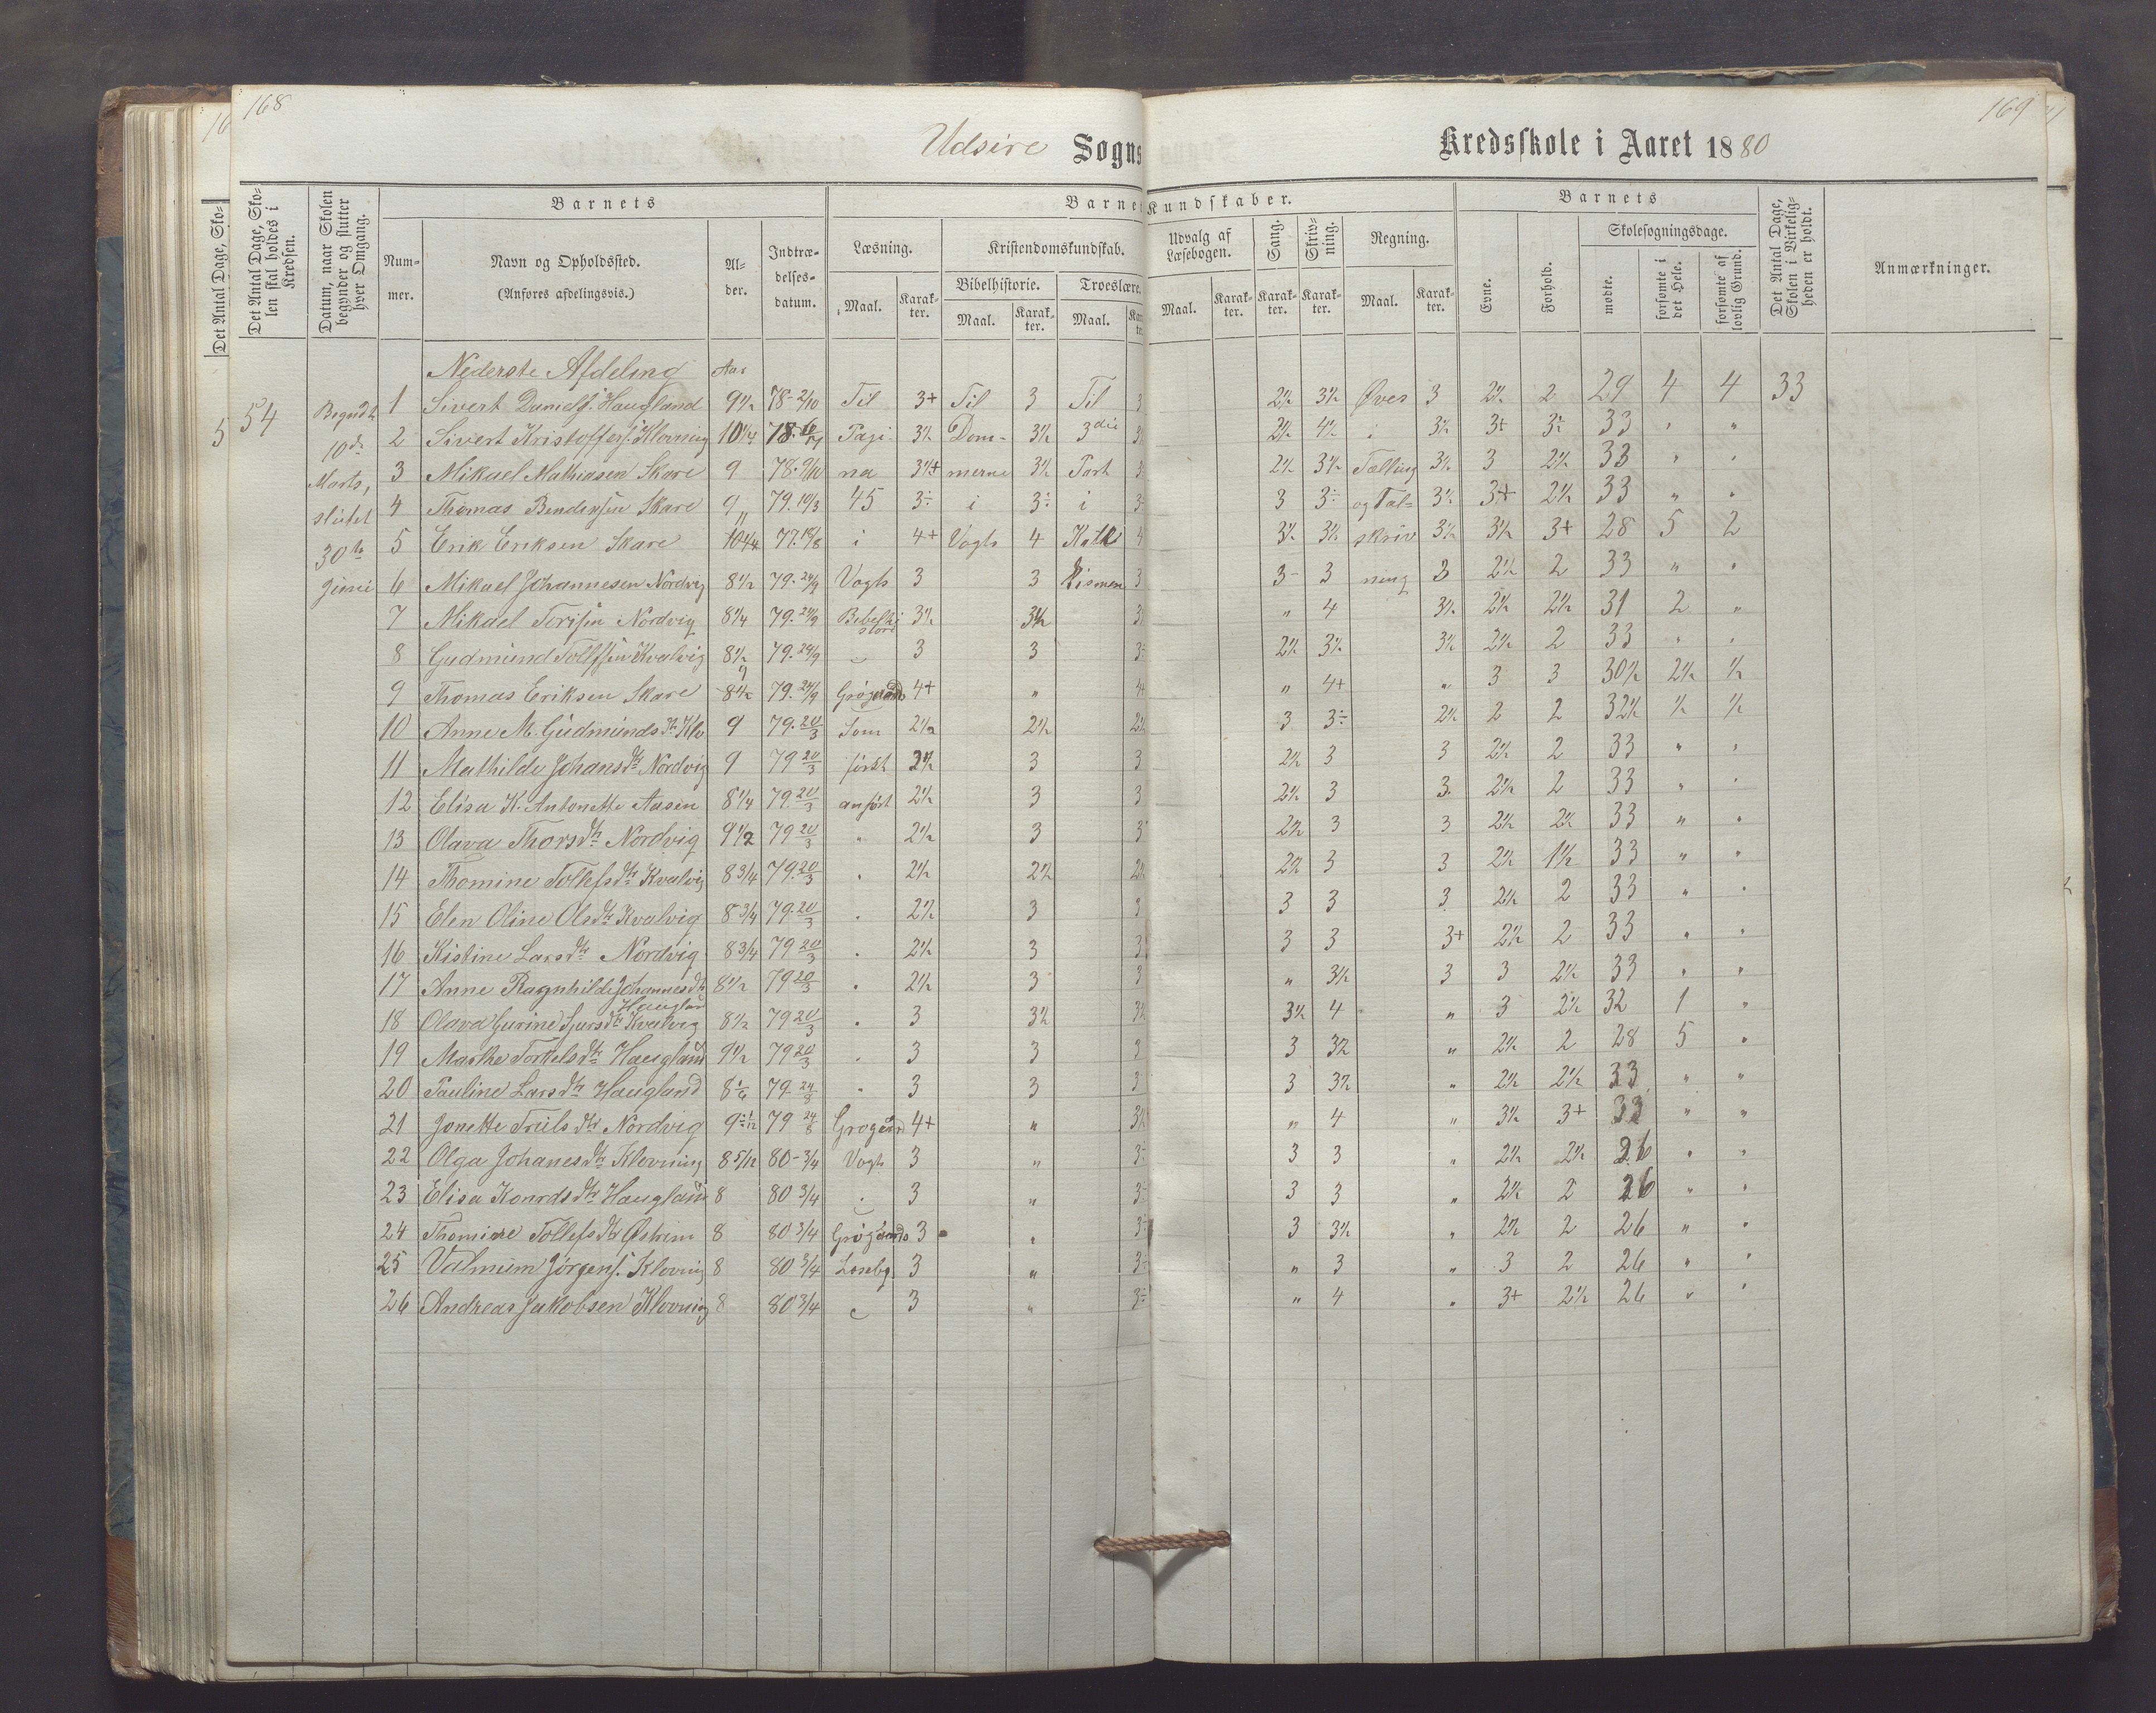 168
169
Udsire Sogns Kredsskole i Aaret 1880
Det Antal Dage, Sko-
Det Antal Dage, Skolen skal holdes i Kredsen.
Datum, naar Skolen begynder og slutter hver Omgang.
Barnets
Barnets Kundskaber.
Barnets
Det Antal Dage, Skolen i Virkeligheden er holdt.
Anmærkninger.
Nummer.
Navn og Opholdssted.
(Anføres afdelingsvis.)
Alder.
Indtrædelsesdatum.
Læsning.
Kristendomskundskab.
Bibelhistorie.
Troeslære.
Udvalg af Læsebogen.
Sang.
Skrivning.
Regning.
Evne.
Forhold.
Skolesøgningsdage.
mødte.
forsømte i det Hele.
forsømte af lovlig Grund.
Maal. Karakter. Maal. Karakter. Maal. Maal. Karakter. Karakter. Karakter. Maal. Karakter.
Nederste Afdeling Aar
54 Begyndt 1 Sivert Daniels. Haugland 9½ 78-2/10 Til 3+ Til 3 Til 3 2½ 3½ Øves 3 2½ 2 29 4 4 33
10de 2 Sivert Kristoffers. Klovning 10¼ 78. Pagi- 3½ Dom- 3½ 3die 2½ 4½ i 3½ 3+ 3÷ 33 " "
Marts, 3 Mikael Mathiasen Skare 9 78.9/10 na 3½+ merne 3½ Part 2½ 3½ Tælling 3½ 3 2½ 33 " "
slutet 4 Thomas Bendiksen Skare 9 79.10/3 45 3÷ i 3÷ i 3 3÷ og Tal- 3½ 3+ 2½ 33 " "
30te 5 Erik Eriksen Skare 10¼ 77. i 4+ Vogts 4 Kate 4 3½ 3½ skriv 3½ 3½ 3+ 28 5 2
Juni 6 Mikael Johannesen Nordvig 8½ 79.24/9 Vogts 3 3 kismen 3 3- 3 ning 3 2½ 2 33 " "
7 Mikael Torisen Nordvig 8¼ 79.24/9 Bibelhistorie 3½ 3½ " 4 3½ 2½ 2½ 31 2 "
8 Gudmund Tollefsen Kvalvig 8½ 79.24/9 3 3 3÷ 2½ 3½ 3½ 2½ 2 33 " "
9 Thomas Eriksen Skare 8½ 9 79.24/9 Grøgaards 4+ " " 4+ " 3 3 30½ 2½ ½
10 Anne M. Gudmunds dtr Klo 9 79.20/3 Som 2½ 2½ 2½ 3 3÷ 2½ 2 2 32½ ½ ½
11 Mathilde Johans dtr Nordvig 9 79 20/3 først 2½ 3 3 2½ 3 3 2½ 2 33 " "
12 Elisa K. Antonette Aasen 8¼ 79.20/3 anført 2½ 3 3 2½ 3 3 2½ 2 33 " "
13 Olava Thors dtr Nordvig 9½ 79 20/3 " 2½ 3 3 2½ 3 3 2½ 2½ 33 " "
14 Thomine Tollefs dtr Kvalvig 8¾ 79.20/3 " 2½ 2½ 2½ 2½ 3 3 2½ 1½ 33 " "
15 Elen Oline Ols dtr Kvalvig 8¾ 79.20/3 " 2½ 3 3 3 3 3 2½ 2 33 " "
16 Kistine Lars dtr Nordvig 8¾ 79 20/3 " 2½ 3 3 3 3 3+ 2½ 2 33 " "
17 Anne Ragnhilde Johannes dtr Haugland 8½ 79 20/3 " 2½ 3 3 " 3½ 3 3 2½ 33 " "
18 Olava Gurine Sjurs dtr Kvalvig 8½ 79 20/3 " 3 3½ 3½ 3½ 4 " 3 2½ 32 1 "
19 Marthe Torkels dtr Haugland 9½ 79 20/3 " 3 3 3 3 3½ " 2½ 2 28 5 "
20 Pauline Lars dtr Haugland 8 1/6 79. " 3 3 3 3 3½ " 2½ 2½ 33 " "
21 Jonette Truls dtr Nordvig 9÷1/12 79 24/8 Grøgaard 4+ " 3½ " 4 " 3½ 3+ 33 " "
22 Olga Johanes dtr Klovning 8 5/12 80-3/4 Vogts 3 " 3÷ 3 3 " 2½ 2½ 26 " "
23 Elisa Konrds dtr Haugland 8 80 3/4 " 3 " 3÷ 3 3 " 2½ 2 26 " "
24 Thomine Tollefs dtr Østrim 8 80 3/4 Grøgaards 3 " 3÷ 3 3½ " 2½ 2 26 " "
25 Valmum Jørgens. Klovnig 8 80 3/4 Læsebg. 3 " 3÷ " 3 " 3 2 26 " "
26 Andreas Jakobsen Klovning 8 80 3/4 3 " 3÷ " 4 " 3+ 2½ 26 " "